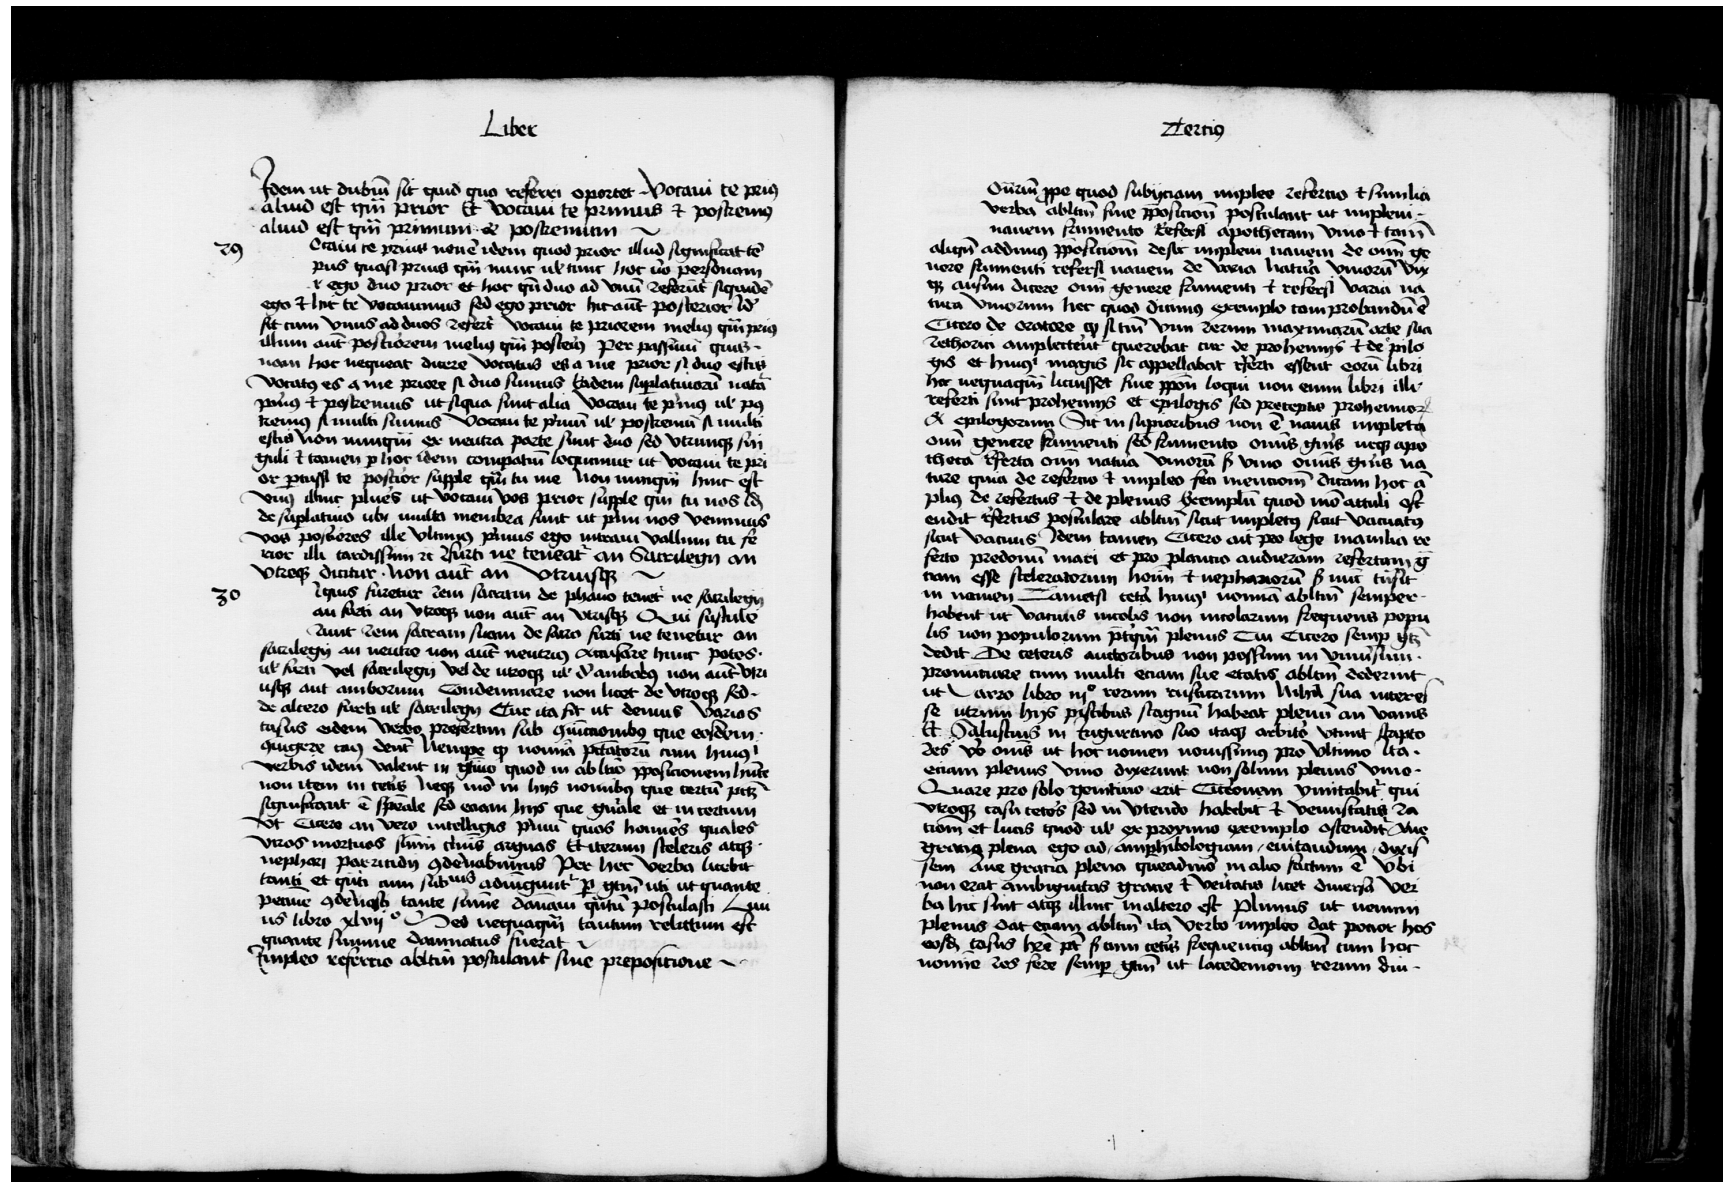 Liber
Idem ut dubiū sit quid quo referri oportet · Vocaui te priꝰ
aliud est qm̄ prior Et vocaui te primus ⁊ postremꝰ
aliud est qm̄ primum et postremum
29 Ocaui te prius neue idem quod prior illud significat tē
pus quasi prius qm̄ nunc ul tunc hoc ūo personam
⁊ ego duo prior et hoc qn̄ duo ad vnū referūt̄ siquidē
ego ⁊ hic te vocauimus sed ego prior hic aūt posterior Id
sit cum vnus ad duos refert̄ vocaui te priorem melius qm̄ prius
illum aūt posteriorem melius qm̄ posteriꝰ Per passiuū quis-
nam hoc nequeat dicere vocatus es a me prior si duo estis
vocatꝰ es a me priore si duo sumus Eadem suꝑlatiuorū natā
prīus ⁊ postremus ut siqua sunt alia vocaui te prīus ul pos
tremus si multi sumus Vocaui te prīum ul postremū si multi
estis Non nunqm̄ ex neutra parte sunt duo sed vtrinqꝫ sin
guli ⁊ tamen ꝑ hoc idem compatiū loquimur ut vocaui te pri
or ꝑcussi te posterior supple qm̄ tu me Non nunqm̄ hinc est
vnus illinc plures ut vocaui vos prior supple qm̄ tu nos Id
de suꝑlatiuo ubi multa membra sunt ut prīmi nos venimus
vos posteriores ille vltimus prīmus ego intraui vallum tu se
rior illi tardissimi ⁊c Furti ne teneat̄ an sacrilegij an
vtroqꝫ dicitur · Non aūt an vtriusqꝫ
30 Iquis furetur rem sacram de phano tenet̄ ne sacrilegij
an furti an vtroqꝫ non aūt an vtriusqꝫ Qui sustule
runt rem sacram suam de sacro furti ne tenetur an
sacrilegij an neutro non aūt neutrius Accusare hunc potes ·
ul furti vel sacrilegij vel de utroqꝫ ul d' ambobus non aūt utri
usqꝫ aut amborum Condemnare non licet de vtroqꝫ sed ·
de altero furti ul sacrilegij Cur ita sit ut demus varios
casus eidem verbo presertim sub quest̄ionibus que eosdem ·
exigere casus dent̄ Nempe qꝫ nomīa petatorū cum huiꝰ
verbis idem valent in gtiūo quod in abltīo prepositionem hnt̄e
non item in ceteris Neqꝫ mō in hijs nomībus que certū petm̄
significant ē speciale sed etiam hijs que gnrāle et incertum
Vt Cicero an vero intelligis prīmū quos homines quales
viros mortuos summi cīuis arguas Et iterum sceleris atqꝫ ·
nepharij parricidij 9demnabimus Per hec verba licebit
tanti et qn̄ti cum subuis adiungunt̄ ꝑ gtm̄ uti ut quante
pecuie 9dēnasti tante sūme dānaui qn̄tū postulasti Liui
us libro xlvij° Deo nequaqm̄ tantum relictum est
quante summe damnatus fuerat
Impleo refercio abltiū postulant sine prepositione
Tertiꝰ
Omniū ꝓpe quod subijciam impleo refercio ⁊ similia
verba abltm̄ sine p̄positiōn postulant ut impleui ·
nauem frumento Refersi apothecam vino ⁊ tam̄
aliqn̄ addimus p̄positiōm desit impleui nauem de omi ge
nere frumenti refersi nauem de varia natura vinorū Vix
qꝫ ausim dicere omi genere frumenti ⁊ refersi varia na
tura vinorum hec quod dicimus exemplo comprobandū ē
Cicero de oratore qꝫ si tm̄ vim rerum maximarū arte sua
rethorici amplecteretur̄ querebat cur de prohemijs ⁊ de epilo
gis et huiꝰ magis sic appellabat referti essent eorū libri
hec nequaqm̄ licuisset sine ppōn loqui non enim libri illi
referti sunt prohemijs et epilogis sed preceptis prohemior
& epilogorum Sic in superioribus non ē nauis impleta
omi genere frumenti sed frumento omis gnis neqꝫ apo
theca referta omi natura vinorū s vino omis gnis na
ture quia de refercio ⁊ impleo feci mentiōn dicam hoc ā
plius de refertus ⁊ de plenus Exemplū quod mō attuli ost
endit refertus postulare abltm̄ sicut impletꝰ sicut vacuatꝰ
sicut vacuus Idem tamen Cicero ait pro lege manilia re
ferto predonum mari et pro plancio audieram refertam g
ciam esse sceleratorum homi ⁊ nephariorū s nūc trāsit
in nomen Tametsi cetā huiꝰ nomīa abltm̄ semper ·
habent ut vacuus incolis non incolarum frequens popu
lis non populorum p̄terqm̄ plenus Cui Cicero semp gtm̄
dedit De ceteris auctoribus non possum in vniuersum ·
promittere cum multi etiam sue etatis abltm̄ dederint
ut Varro libro iij° rerum rusticarum Nihil sua interes
se utrum hijs piscibus stagnū habeat plenū an vanis
Et Salustius in Iugurtino suo itaqꝫ arbitror utunt̄ scripto
res vō omis ut hoc nomen nouissimus pro vltimo ita ·
etiam plenus vino dixerunt non solum plenus vino ·
Quare pro solo genitiuo erit Ciceronem ymitabit̄ qui
vtroqꝫ casu ceteros sed in vtendo habebit ⁊ venustatis ra
tiōm et lucis quod ul ex proximo exemplo ostendit̄ Aue
gracia plena ego ad amphibologiam euitandum dixis
sem aue gracia plena queadmō in alio factum ē Vbi
non erat ambiguitas gracie ⁊ veritatis licet diuersa ver
ba hic sint atqꝫ illinc in altero est Plenus ut nemini
plenus dat etiam abltm̄ ita verbo impleo dat pocior hos
eosd̄ casus hrē pt̄ s cum ceteris frequencius abltm̄ cum hoc
nomine res fere semꝑ gtm̄ ut lacedemonij rerum diu ·